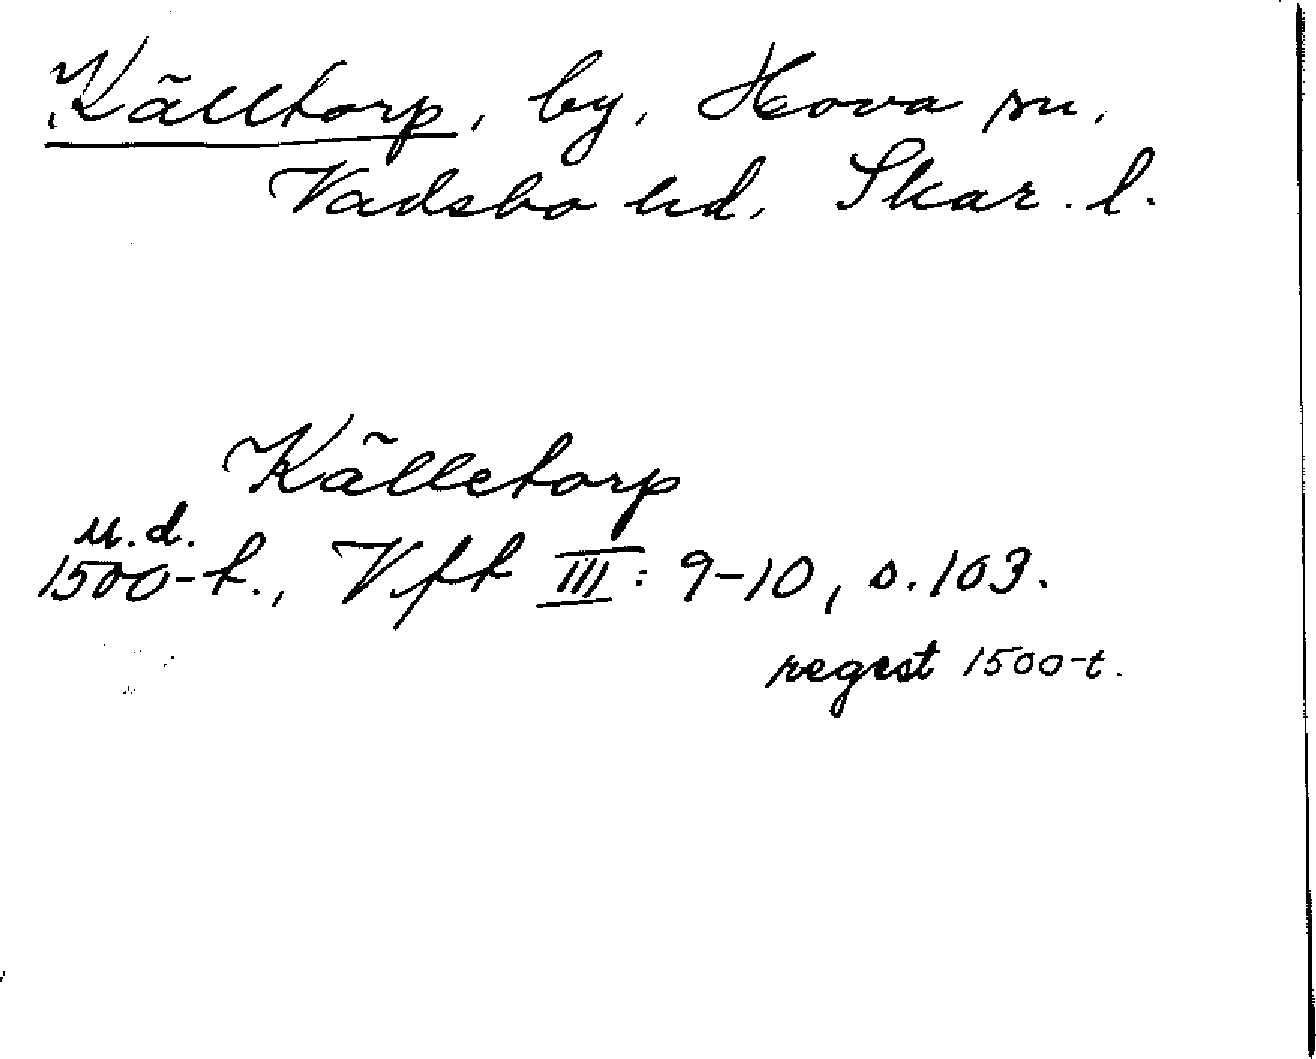 Källtorp, by, Hova sn,
Vadsbo hd, Skar. l.
Källetorp
u.d.
1500-t., Vft III: 9-10, s. 103.
regest 1500-t.